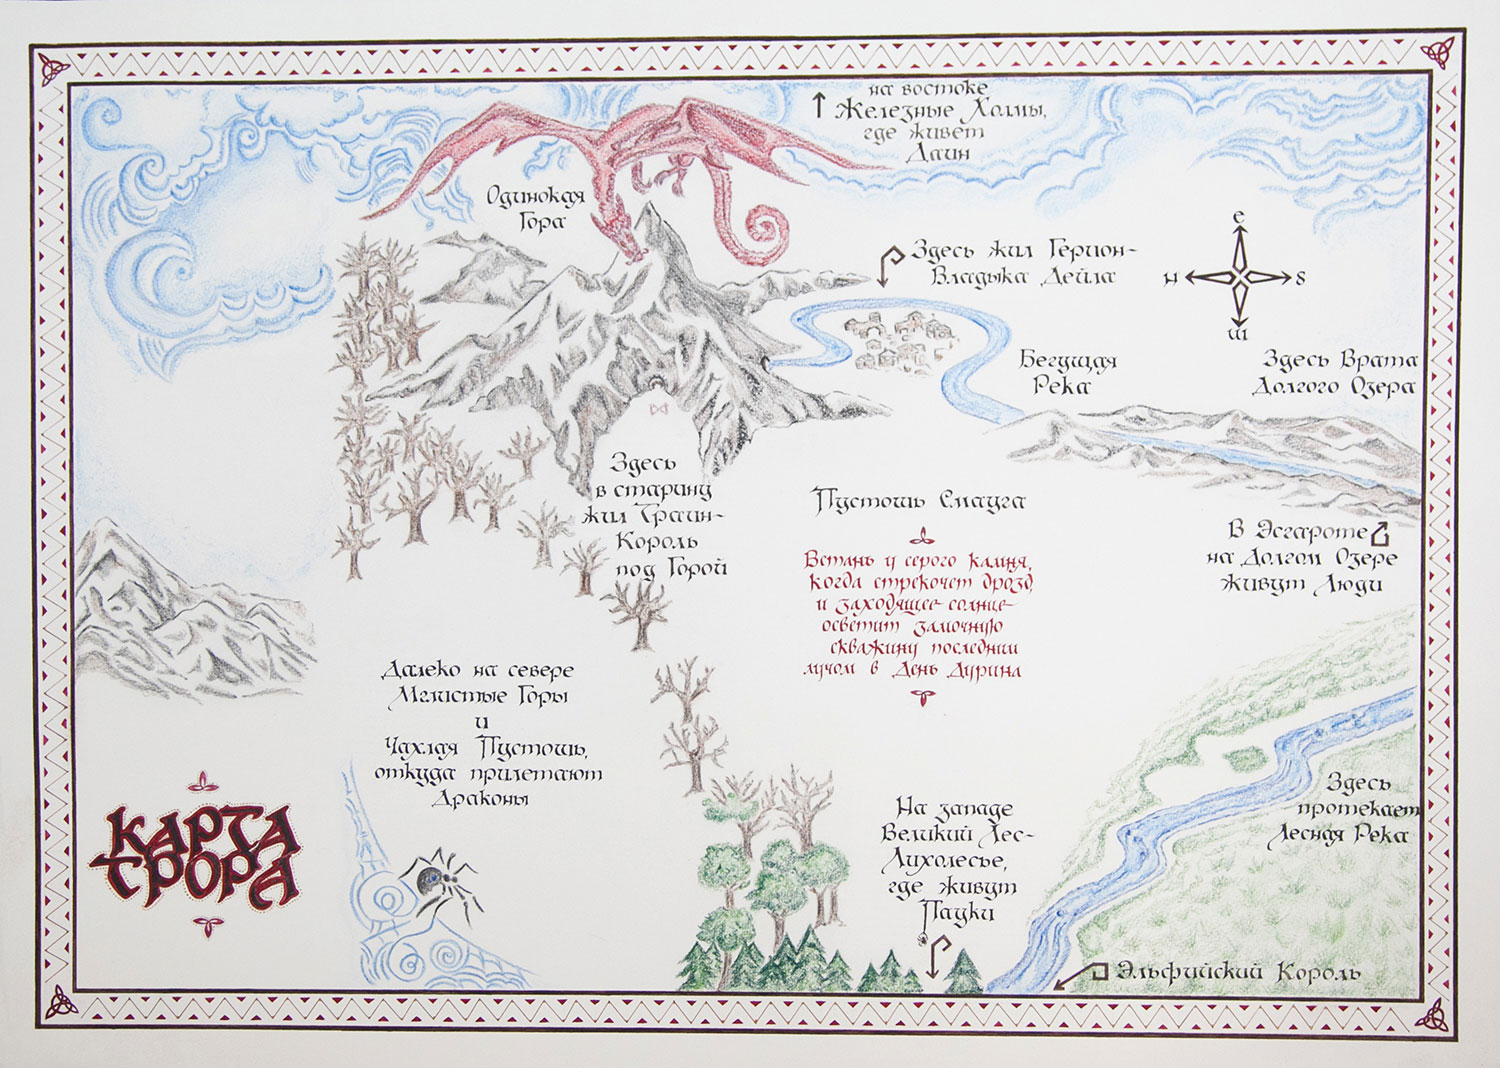 на востоке
Железные Холмы,
где живет
Даин
Одинокая
Гора
Здесь жил Герион-
Владыка Дейла
е
н s
ш
Бегущая
Река
Здесь Врата
Долгого Озера
Здесь
в старину
жил Траин-
Король
под Горой
Пустошь Смауга
Встань у серого камня,
когда стрекочет дрозд,
и заходящее солнце
осветит замочную
скважину последним
лучом в День Дурина
В Эсгароте
на Долгом Озере
живут Люди
Далеко на севере
Мглистые Горы
и
Чахлая Пустошь,
откуда прилетают
Драконы
КАРТА
ТРОРА
На западе
Великий Лес-
Лихолесье,
где живут
Пауки
Здесь
протекает
Лесная Река
Эльфийский Король